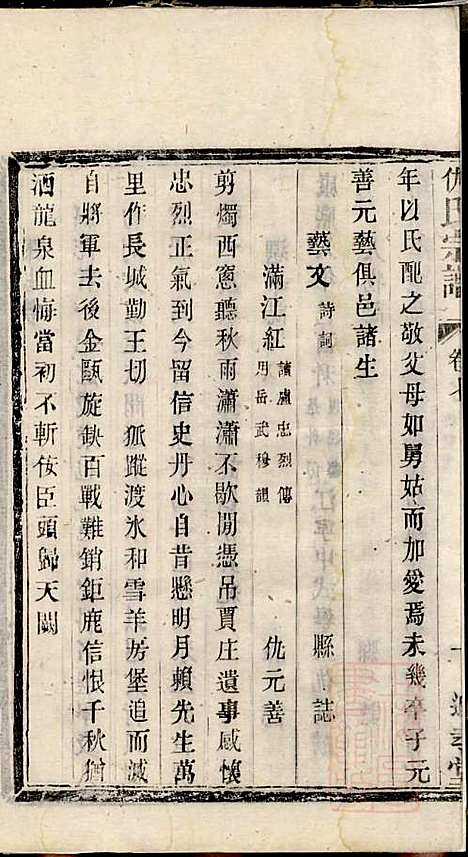 仇氏宗譜 卷七
年以氏配之敬父母如舅姑而加愛焉未幾卒子元
善元藝俱邑諸生
藝文 詩詞 縣誌
滿江紅 讀盧忠烈傳 用岳武穆韻 仇元善
剪燭西窻聽秋雨瀟瀟不歇閒憑吊賈庄遺事感懷
忠烈正氣到今留信史丹心自昔懸明月賴先生萬
里作長城勤王切 狐蹤渡氷和雪羊房堡迫而滅
自將軍去後金甌旋缺百戰難銷鉅鹿信恨千秋猶
洒龍泉血悔當初不斬佞臣頭歸天闕